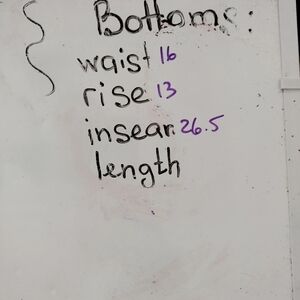 Bottoms:
waist 16
rise 13
inseam 26.5
length